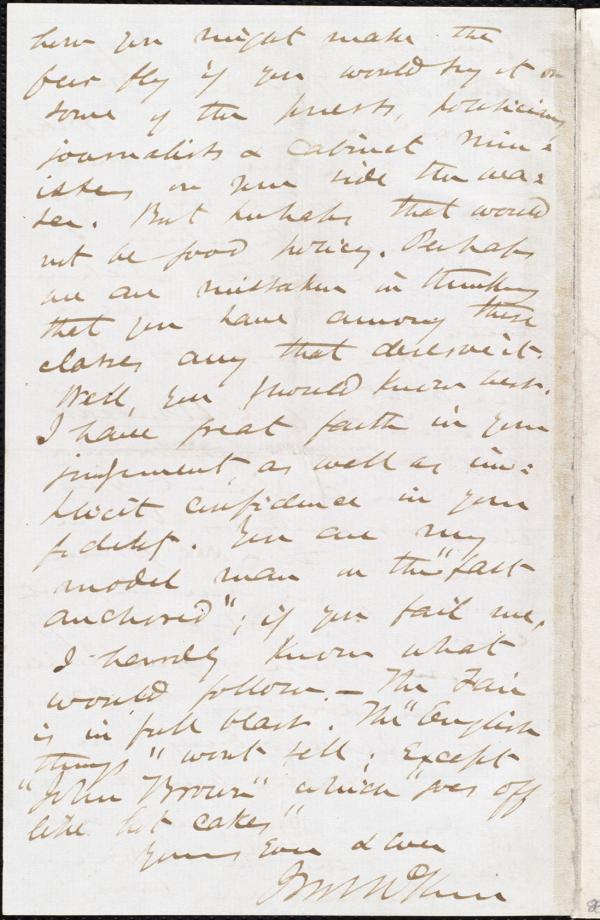 how you might make the
fur fly if you would try it on
some of the priests, politicians
journalists & cabinet min=
isters on your side the wa=
ter. But perhaps that would
not be good policy. Perhaps
we are mistaken in thinking
that you have among these
classes any that deserve it.
Well, you should know best.
I have great faith in your
judgment, as well as im=
plicit confidence in your
fidelity. You are my
model man in the "fast
anchored"; if you fail me,
I hardly know what
would follow. — The Fair
is in full blast. The "English
things" wont sell; except
"John Brown" which "goes off
like hot cakes"
Yours ever & ever
J M McKim